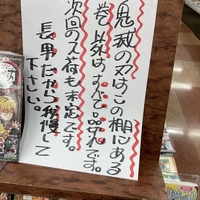 鬼滅の刃はこの棚にある
巻以外はすべて品切れです。
次回の入荷も未定です。
長男だから我慢して
下さい。